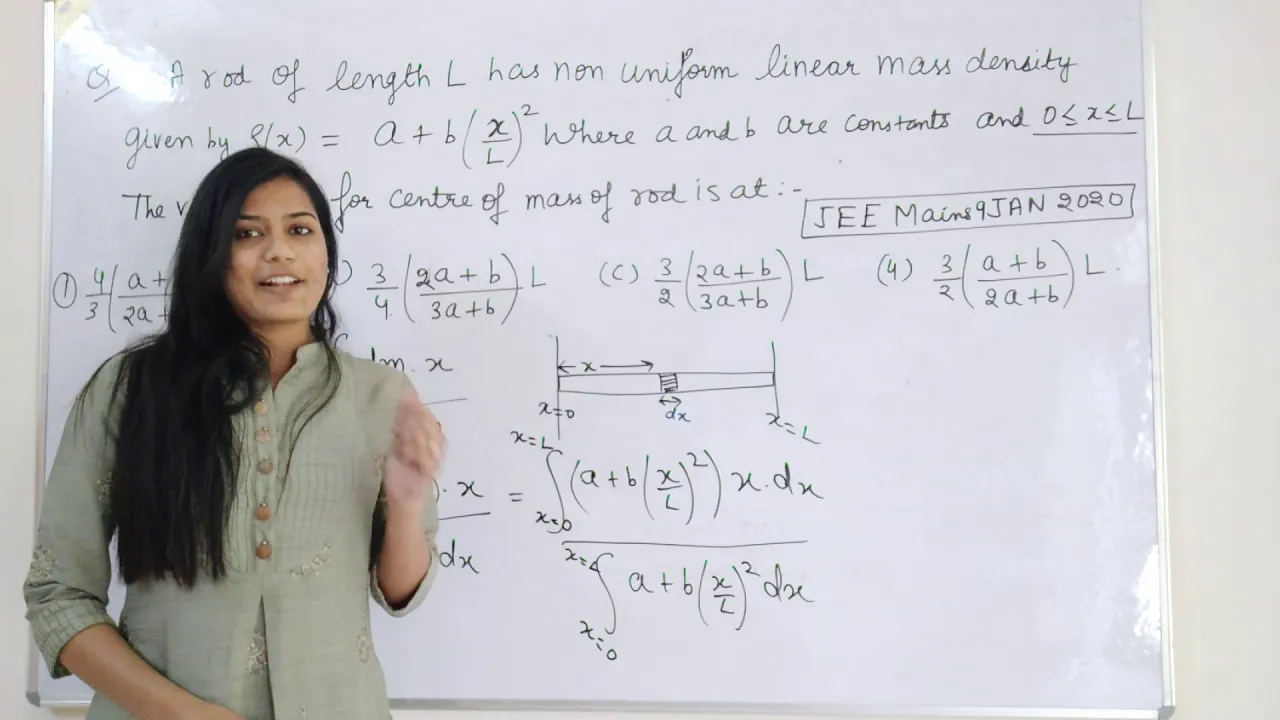 Q A rod of length L has non uniform linear mass density
given by ρ(x) = a + b(x/L)² Where a and b are constants and 0 ≤ x ≤ L
The for centre of mass of rod is at :-
JEE Mains 9 JAN 2020
① 4/3 (a+ 2a+ ) 3/4 (2a+b / 3a+b) L (C) 3/2 (2a+b / 3a+b) L (4) 3/2 (a+b / 2a+b) L.
dm. x
← x →
x=0 dx x=L
). x = ∫ x=0 x=L (a+b(x/L)²) x.dx
dx ∫ x=0 x=L a+b(x/L)² dx